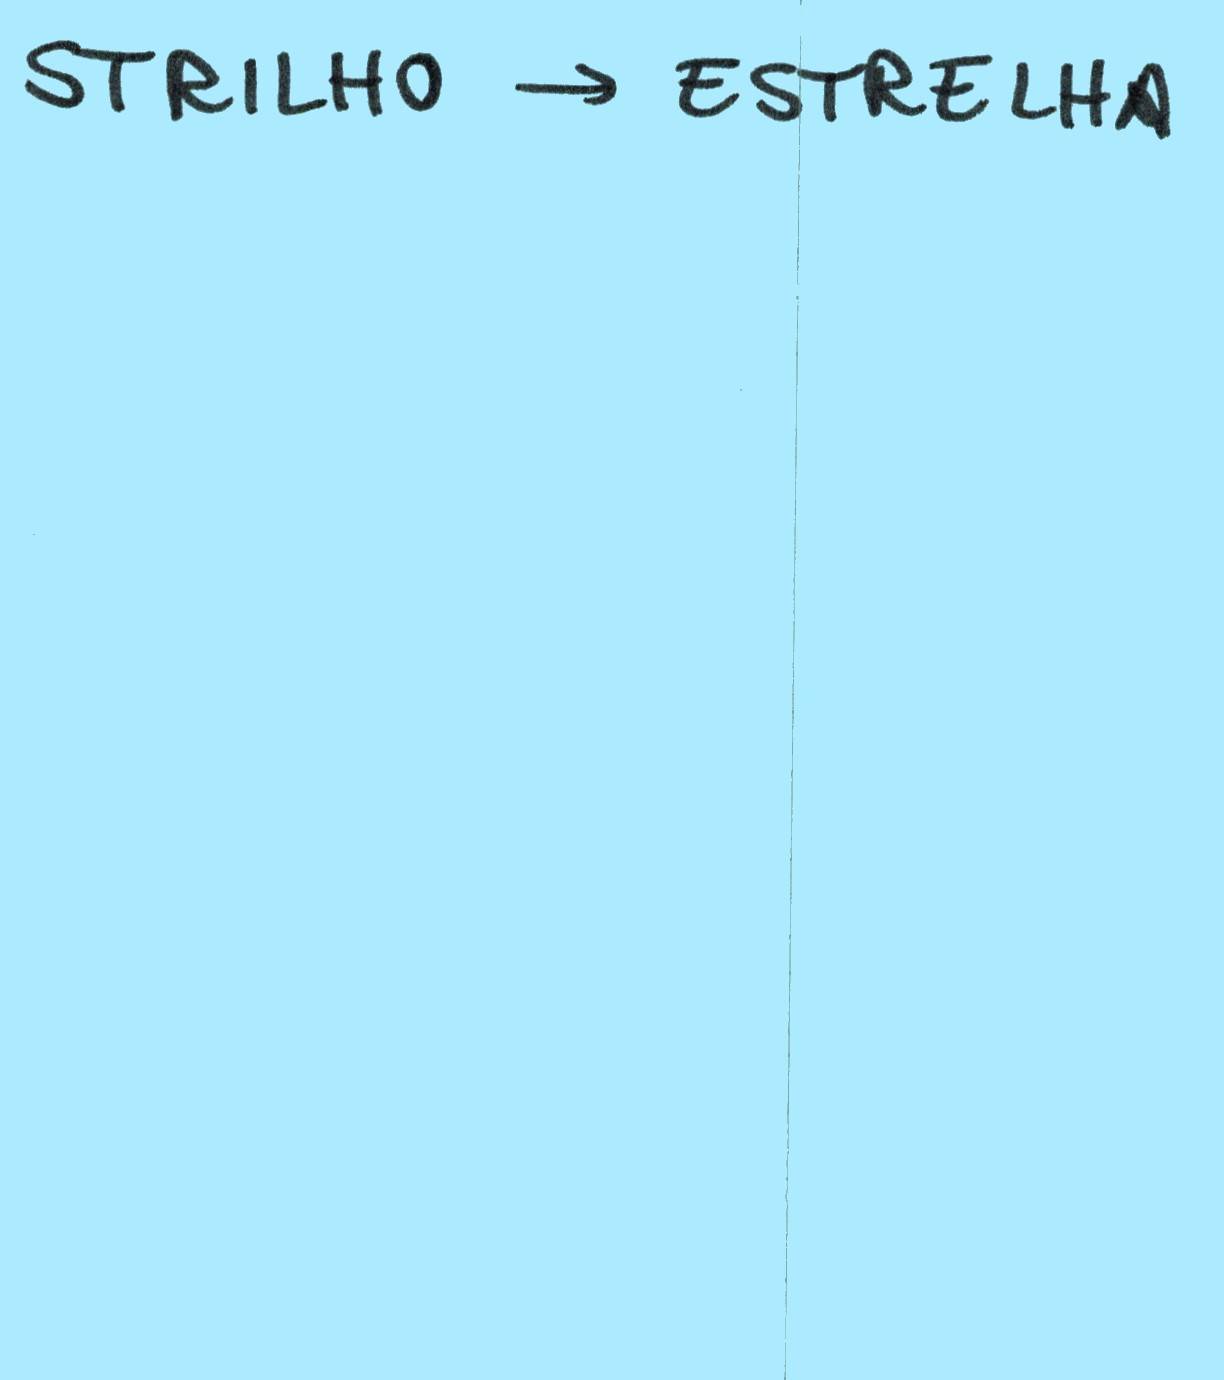 STRILHO → ESTRELHA